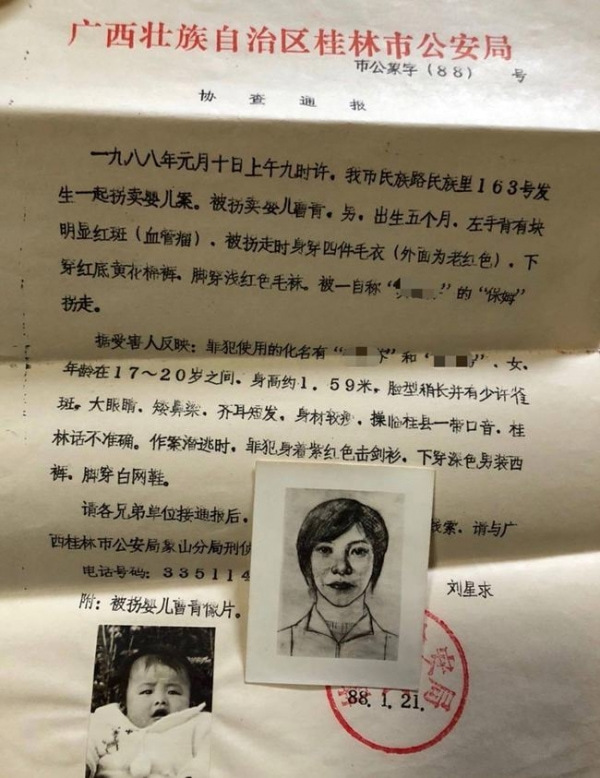 广西壮族自治区桂林市公安局
市公象字（88） 号
协查通报
一九八八年元月十日上午九时许，我市民族路民族里163号发
生一起拐卖婴儿案。被拐卖婴儿曹青，男，出生五个月，左手背有块
明显红斑（血管瘤），被拐走时身穿四件毛衣（外面为老红色），下
穿红底黄花棉裤，脚穿浅红色毛袜。被一自称“ ”的“保姆”
拐走。
据受害人反映：罪犯使用的化名有“ ”和“ ”，女，
年龄在17～20岁之间，身高约1.59米，脸型稍长并有少许雀
斑。大眼睛，矮鼻梁，齐耳短发，身材较瘦，操临桂县一带口音，桂
林话不准确。作案潜逃时，罪犯身着紫红色击剑衫，下穿深色男装西
裤，脚穿白网鞋。
请各兄弟单位接通报后， 线索，请与广
西桂林市公安局象山分局刑侦
电话号码：335114 刘星求
附：被拐婴儿曹青像片。
88.1.21.